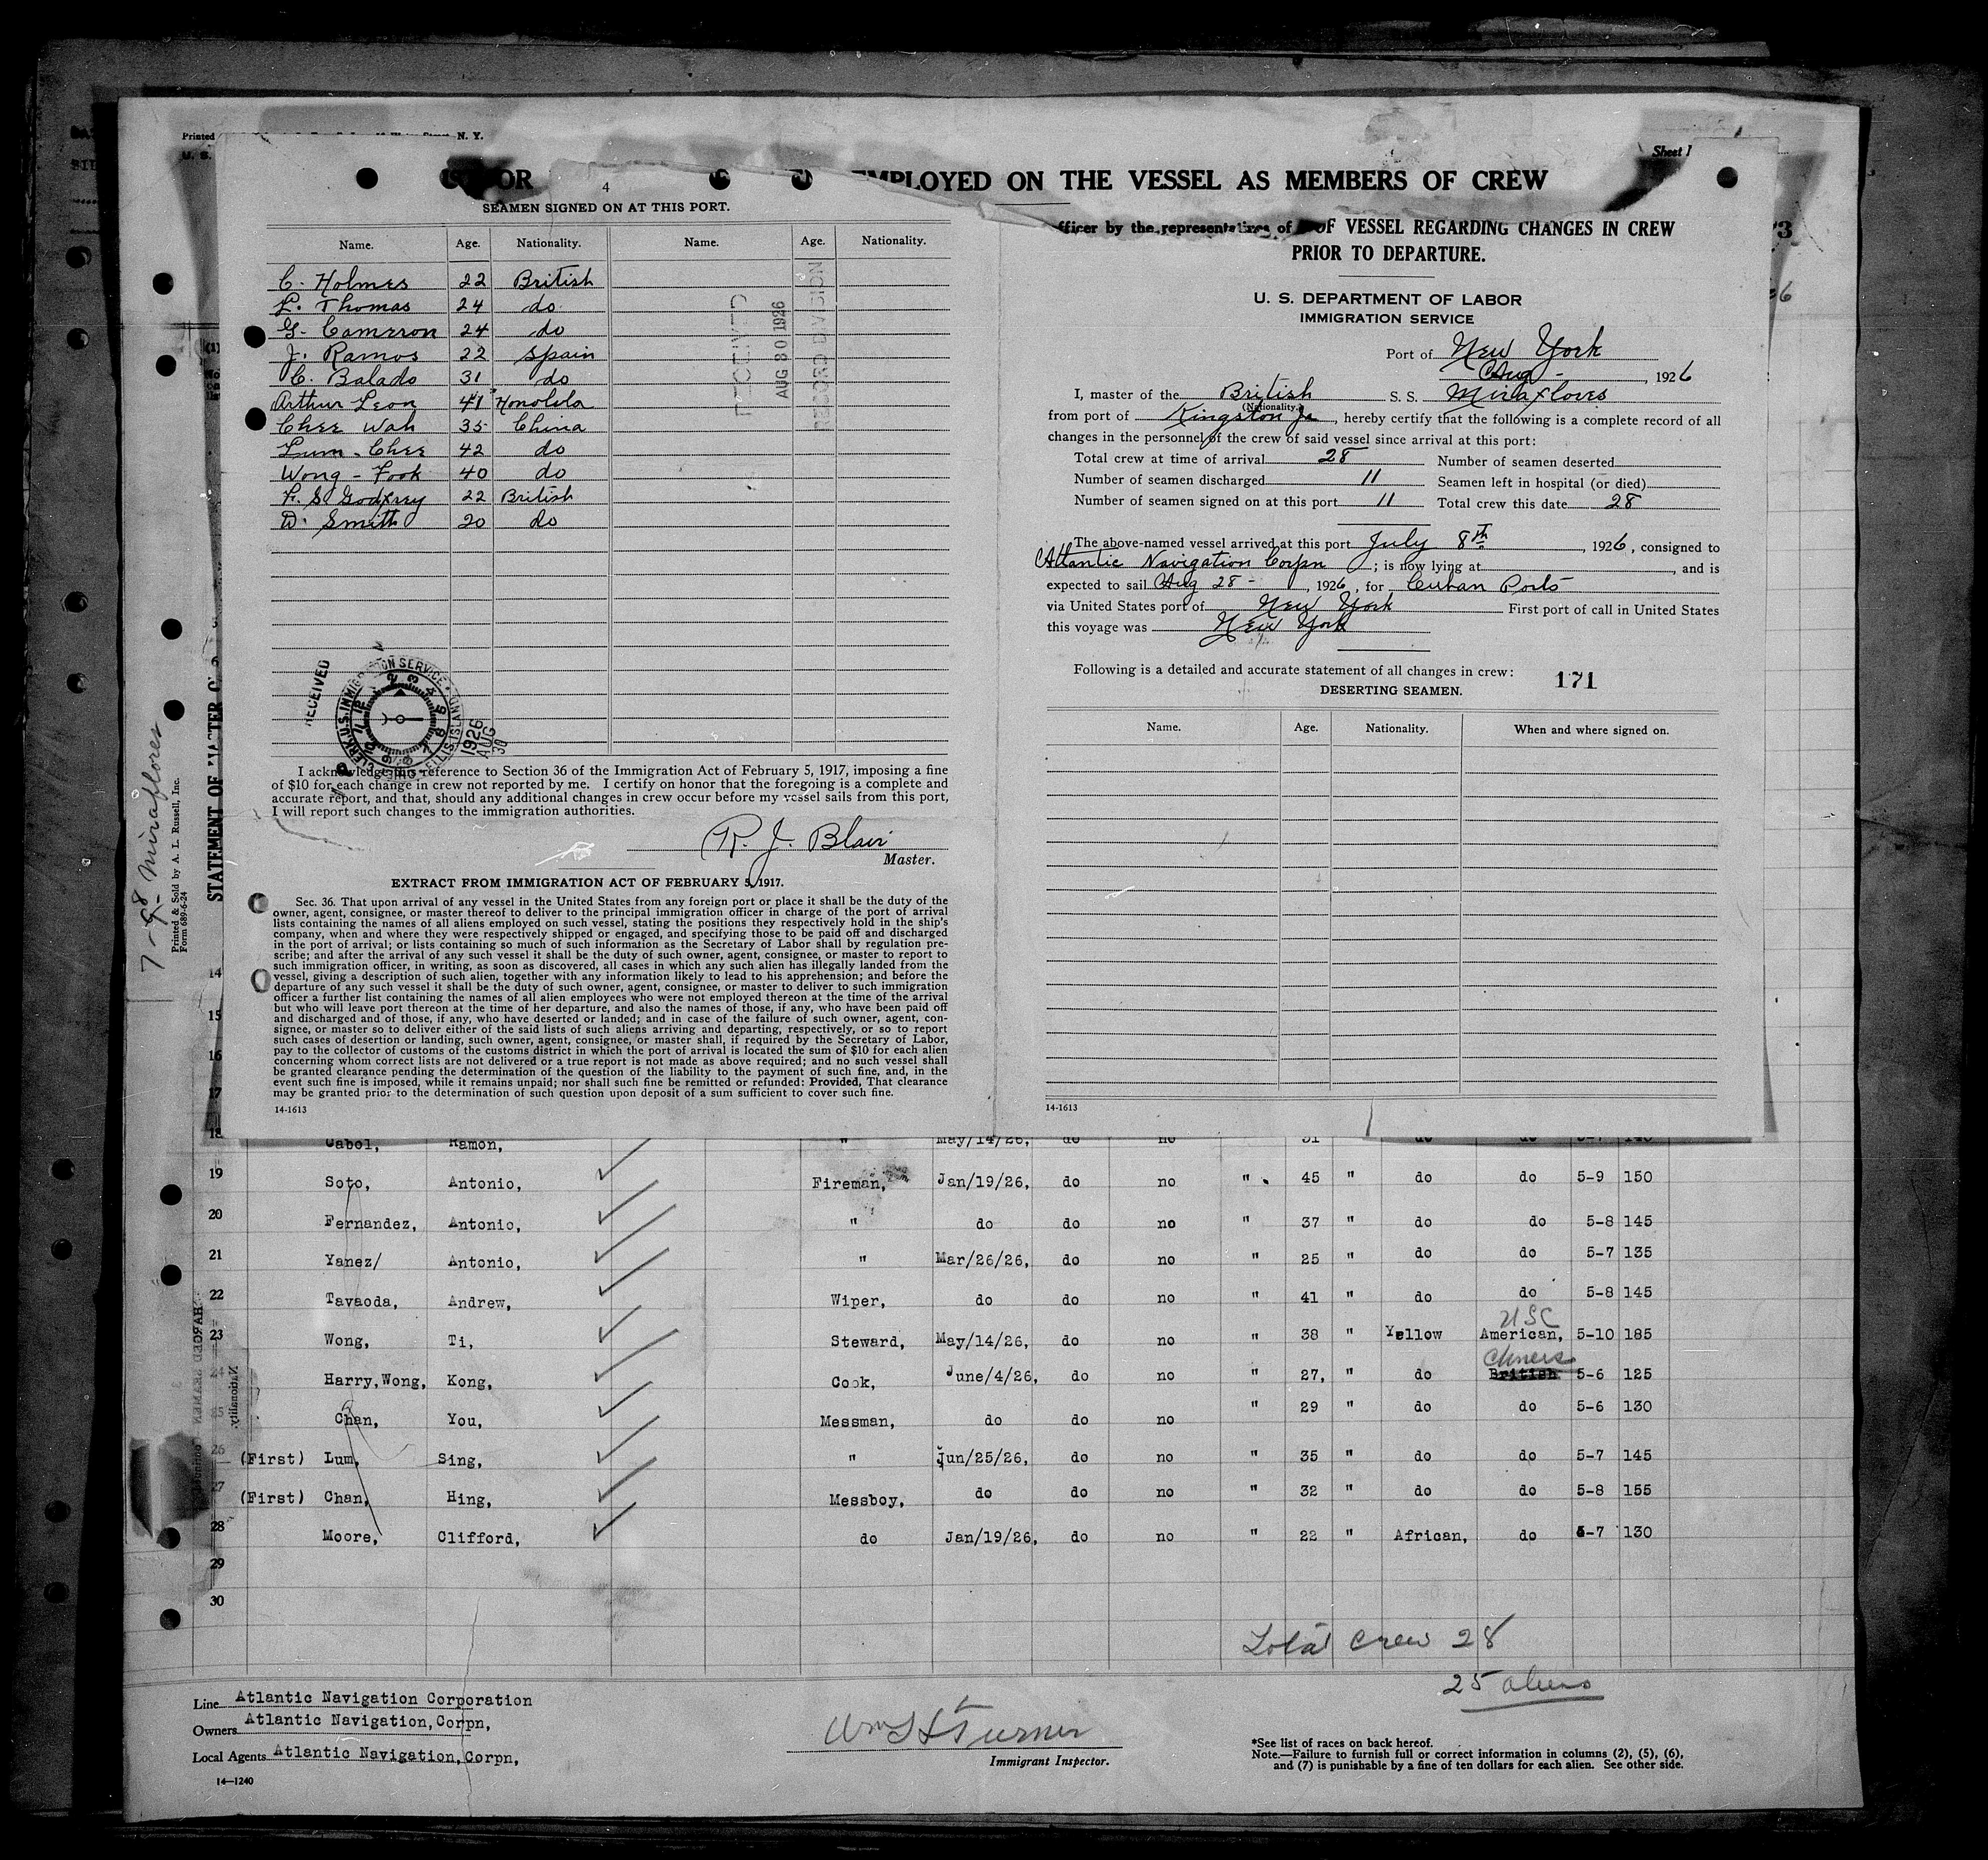 Printed N. Y.
U. S.
Sheet 1
OR
4
EMPLOYED ON THE VESSEL AS MEMBERS OF CREW
SEAMEN SIGNED ON AT THIS PORT.
Name. Age. Nationality. Name. Age. Nationality.
C. Holmes 22 British
L. Thomas 24 do
G. Cameron 24 do
J. Ramos 22 Spain
C. Balado 31 do
Arthur Leon 41 Honolila
Chee Wah 35 China
Lum - Chee 42 do
Wong - Fook 40 do
F. S. Godfrey 22 British
D. Smith 20 do
RECEIVED
AUG 30 1926
RECORD DIVISION
RECEIVED
1926
AUG
30
I acknowledge this reference to Section 36 of the Immigration Act of February 5, 1917, imposing a fine
of $10 for each change in crew not reported by me. I certify on honor that the foregoing is a complete and
accurate report, and that, should any additional changes in crew occur before my vessel sails from this port,
I will report such changes to the immigration authorities.
R. J. Blair
Master.
EXTRACT FROM IMMIGRATION ACT OF FEBRUARY 5, 1917.
Sec. 36. That upon arrival of any vessel in the United States from any foreign port or place it shall be the duty of the
owner, agent, consignee, or master thereof to deliver to the principal immigration officer in charge of the port of arrival
lists containing the names of all aliens employed on such vessel, stating the positions they respectively hold in the ship's
company, when and where they were respectively shipped or engaged, and specifying those to be paid off and discharged
in the port of arrival; or lists containing so much of such information as the Secretary of Labor shall by regulation pre-
scribe; and after the arrival of any such vessel it shall be the duty of such owner, agent, consignee, or master to report to
such immigration officer, in writing, as soon as discovered, all cases in which any such alien has illegally landed from the
vessel, giving a description of such alien, together with any information likely to lead to his apprehension; and before the
departure of any such vessel it shall be the duty of such owner, agent, consignee, or master to deliver to such immigration
officer a further list containing the names of all alien employees who were not employed thereon at the time of the arrival
but who will leave port thereon at the time of her departure, and also the names of those, if any, who have been paid off
and discharged and of those, if any, who have deserted or landed; and in case of the failure of such owner, agent, con-
signee, or master so to deliver either of the said lists of such aliens arriving and departing, respectively, or so to report
such cases of desertion or landing, such owner, agent, consignee, or master shall, if required by the Secretary of Labor,
pay to the collector of customs of the customs district in which the port of arrival is located the sum of $10 for each alien
concerning whom correct lists are not delivered or a true report is not made as above required; and no such vessel shall
be granted clearance pending the determination of the question of the liability to the payment of such fine, and, in the
event such fine is imposed, while it remains unpaid; nor shall such fine be remitted or refunded: Provided, That clearance
may be granted prior to the determination of such question upon deposit of a sum sufficient to cover such fine.
14-1613
fficer by the representatives of OF VESSEL REGARDING CHANGES IN CREW
PRIOR TO DEPARTURE.
U. S. DEPARTMENT OF LABOR
IMMIGRATION SERVICE
Port of New York
Aug - , 1926
I, master of the British S. S. Miraflores
(Nationality.)
from port of Kingston Ja , hereby certify that the following is a complete record of all
changes in the personnel of the crew of said vessel since arrival at this port:
Total crew at time of arrival 28 Number of seamen deserted
Number of seamen discharged 11 Seamen left in hospital (or died)
Number of seamen signed on at this port 11 Total crew this date 28
The above-named vessel arrived at this port July 8th , 1926, consigned to
Atlantic Navigation Corpn ; is now lying at , and is
expected to sail Aug 28 - , 1926, for Cuban Ports
via United States port of New York First port of call in United States
this voyage was New York
Following is a detailed and accurate statement of all changes in crew:
171
DESERTING SEAMEN.
Name. Age. Nationality. When and where signed on.
14-1613
7-8 Miraflores
Printed & Sold by A. L. Russell, Inc.
Form 689-6-24
STATEMENT OF MASTER O
14
15
16
17
18 Cabol, Ramon, " May/14/26, do no 31 do do 5-7 140
19 Soto, Antonio, Fireman, Jan/19/26, do no " 45 " do do 5-9 150
20 Fernandez, Antonio, " do do no " 37 " do do 5-8 145
21 Yanez/ Antonio, " Mar/26/26, do no " 25 " do do 5-7 135
22 Tavaoda, Andrew, Wiper, do do no " 41 " do do 5-8 145
USC
23 Wong, Ti, Steward, May/14/26, do no " 38 " Yellow American, 5-10 185
Chinese
24 Harry, Wong, Kong, Cook, June/4/26, do no " 27, " do British 5-6 125
25 Chan, You, Messman, do do no " 29 " do do 5-6 130
26 (First) Lum, Sing, " Jun/25/26, do no " 35 " do do 5-7 145
27 (First) Chan, Hing, Messboy, do do no " 32 " do do 5-8 155
28 Moore, Clifford, do Jan/19/26, do no " 22 " African, do 5-7 130
29
30
Total crew 28
25 aliens
Line Atlantic Navigation Corporation
Owners Atlantic Navigation, Corpn,
Local Agents Atlantic Navigation, Corpn,
14—1240
Turner
Immigrant Inspector.
*See list of races on back hereof.
Note.—Failure to furnish full or correct information in columns (2), (5), (6),
and (7) is punishable by a fine of ten dollars for each alien. See other side.